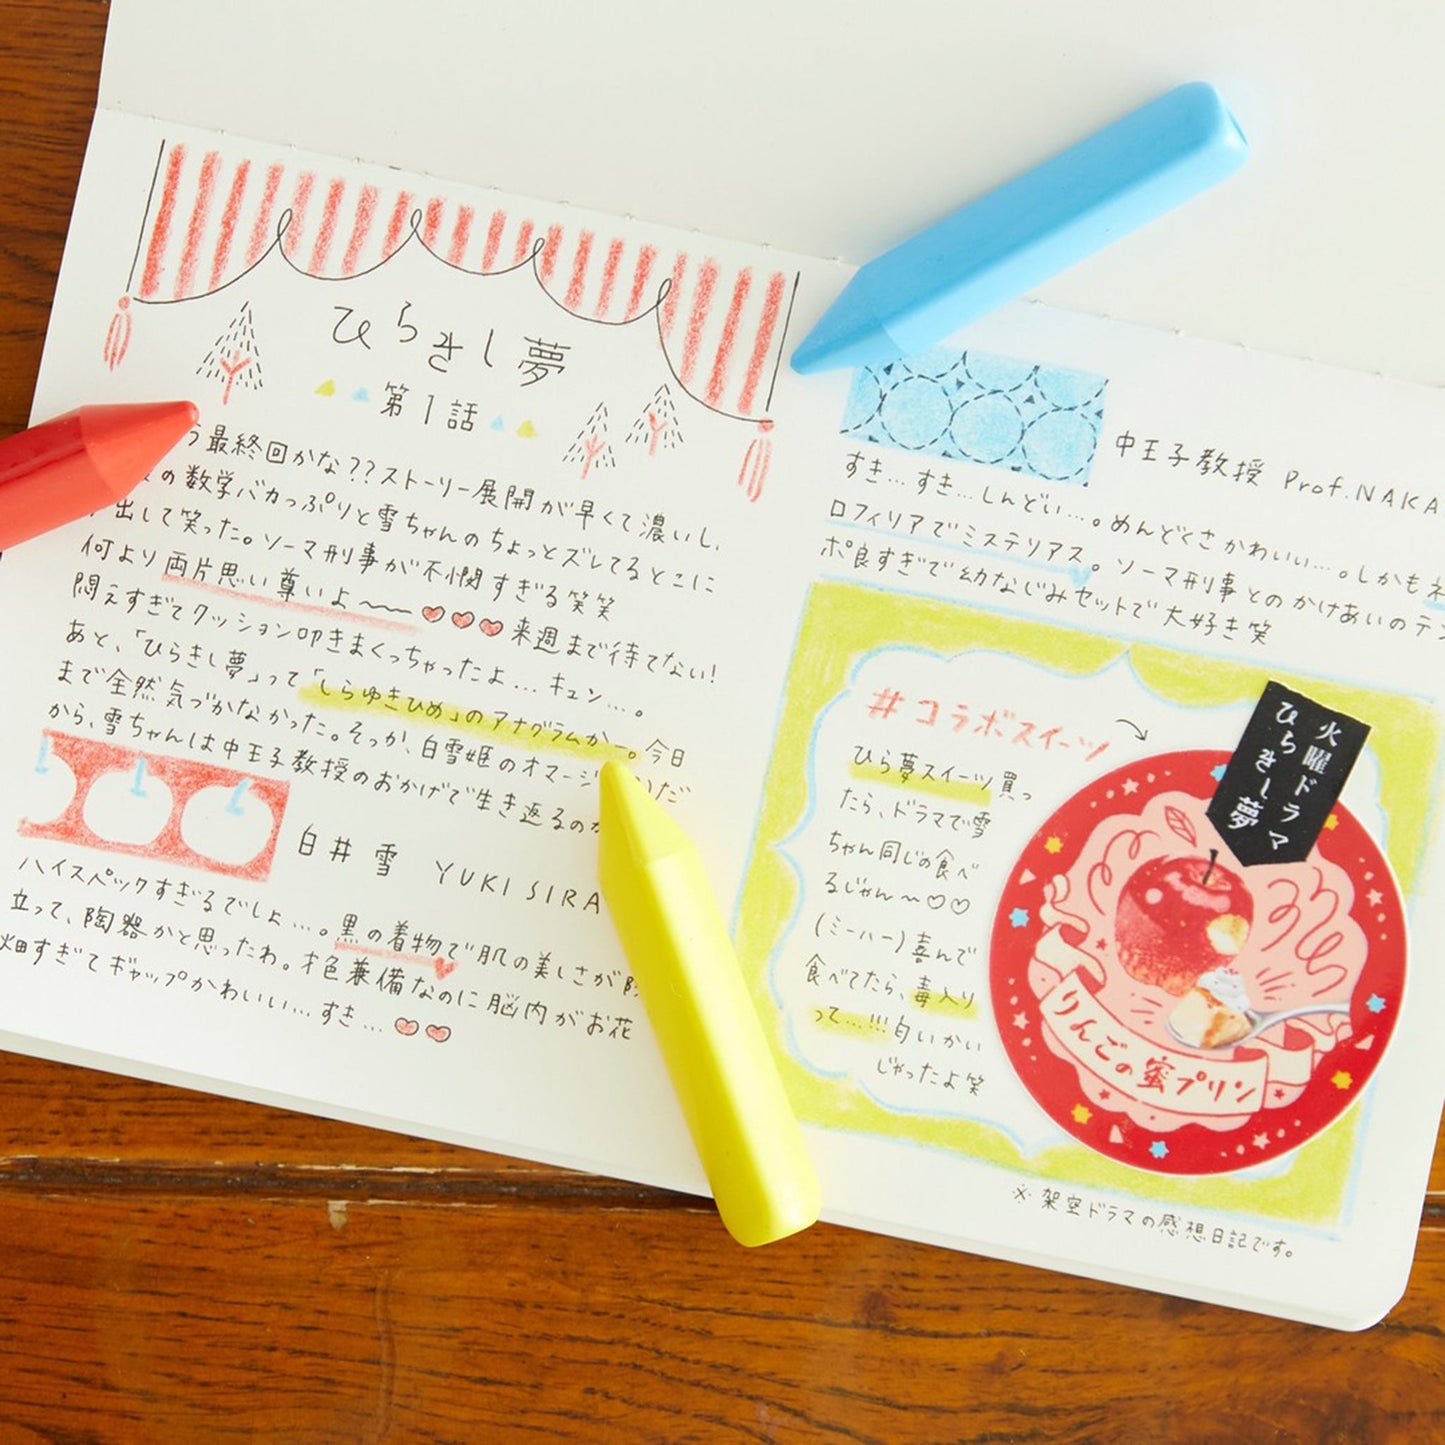 ひらきし夢
第1話
最終回かな??ストーリー展開が早くて濃いし、
の数学バカっぷりと雪ちゃんのちょっとズレてるとこに
出して笑った。ソーマ刑事が不憫すぎる笑笑
何より両片思い尊いよ〜〜♡♡♡来週まで待てない!
悶えすぎてクッション叩きまくっちゃったよ...キュン...。
あと、「ひらきし夢」って「しらゆきひめ」のアナグラムかー。今日
まで全然気づかなかった。そっか、白雪姫のオマージ だ
から、雪ちゃんは中王子教授のおかげで生き返るのか
白井 雪 YUKI SIRA
ハイスペックすぎるでしょ...。黒の着物で肌の美しさが
立って、陶器かと思ったわ。才色兼備なのに脳内がお花
畑すぎてギャップかわいい...すき...♡♡
中王子教授 Prof.NAKA
すき...すき...しんどい...。めんどくさかわいい...。しかも
ロフィリアでミステリアス。ソーマ刑事とのかけあいのテン
ポ良すぎで幼なじみセットで大好き笑
#コラボスイーツ
ひら夢スイーツ買っ
たら、ドラマで雪
ちゃん同じの食べ
るじゃん〜♡♡
(ミーハー)喜んで
食べてたら、毒入り
って...!!!匂いかい
じゃったよ笑
火曜ドラマ
ひらきし夢
りんごの蜜プリン
※架空ドラマの感想日記です。